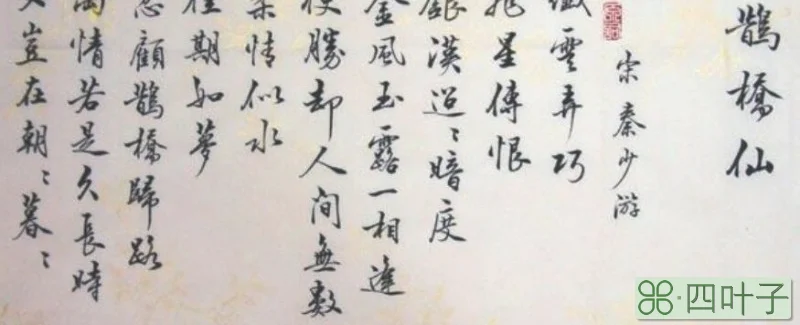 鹊橋仙
宋秦少游
纖雲弄巧
飛星傳恨
銀漢迢〻暗度
金風玉露一相逢
便勝却人间無數
柔情似水
佳期如夢
忍顧鹊橋歸路
两情若是久長時
又豈在朝〻暮〻
四叶子